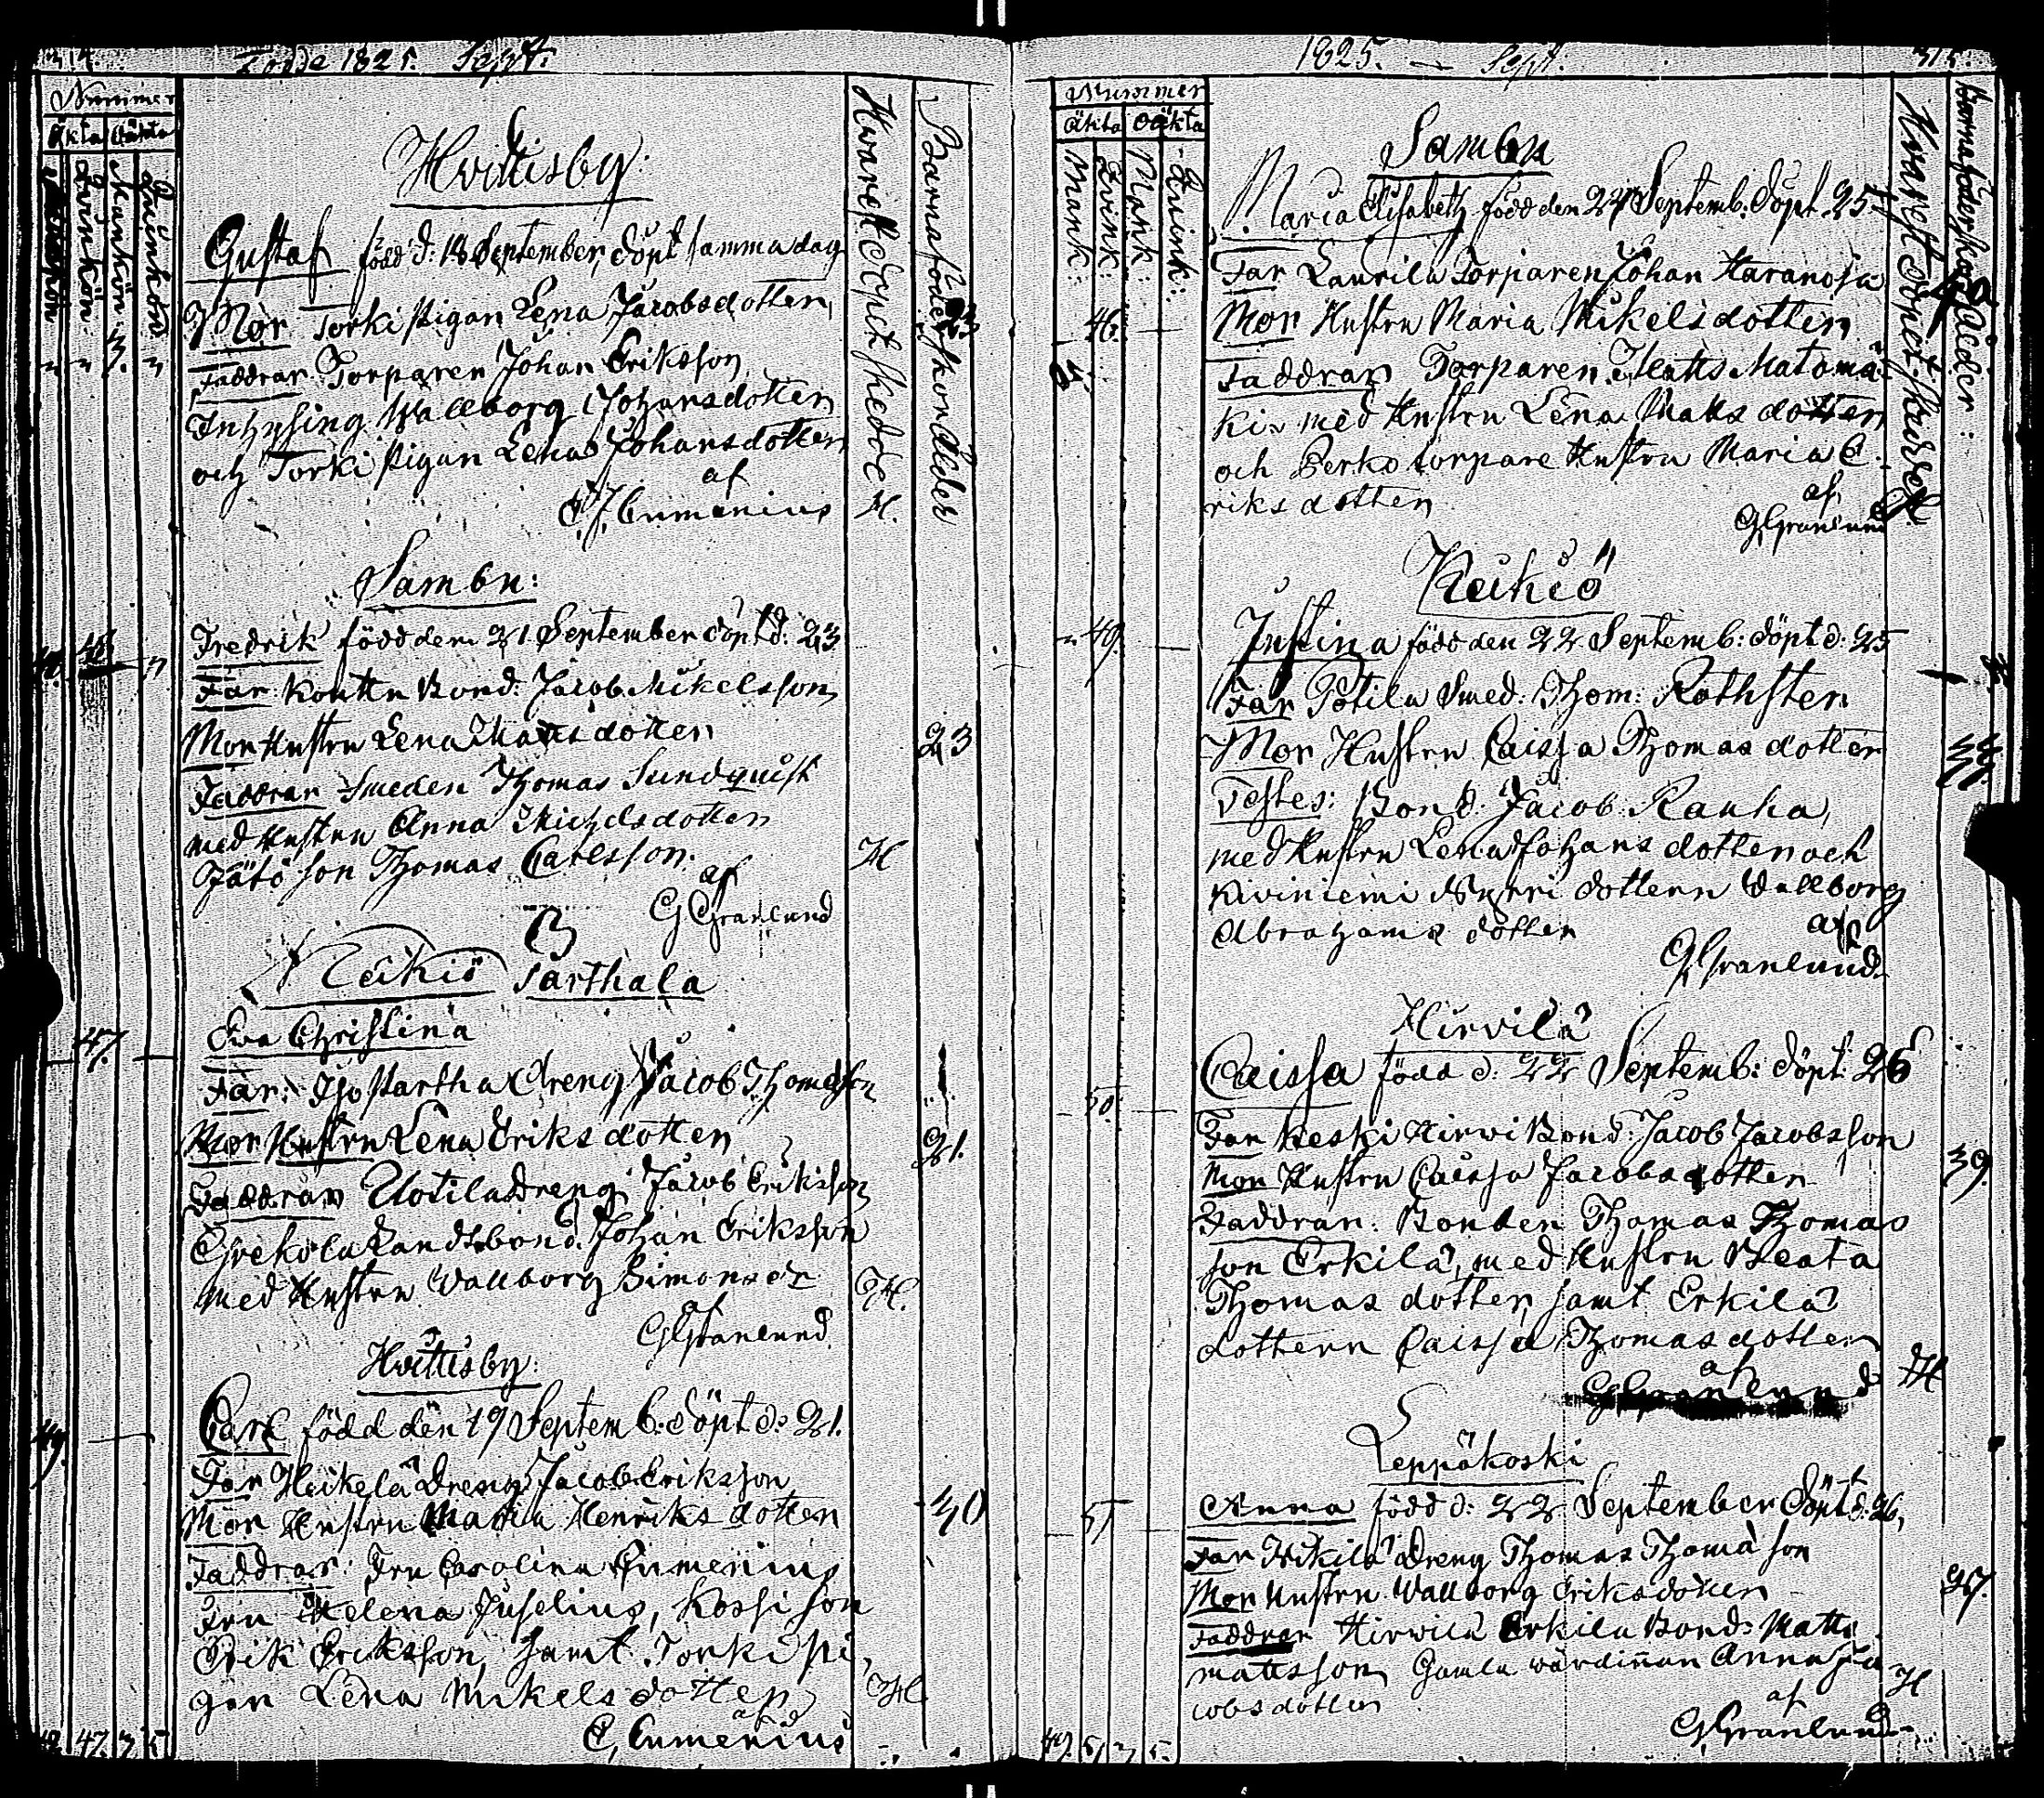 Födde 1825. Sept.
Nummer
Äkta Oäkta
Qvinkön
Mankön
Qvinkön
Hwarest döpet skedde
Barnaföderskans ålder
Hvittisby:
Gustaf född d: 18 September, döpt samma dag
Mor Torki Pigan Lena Jacobsdotter,
Faddrar Torparen Johan Eriksson,
Inhysing Wallborg Johansdotter
och Torki Pigan Lena Johansdotter
af
Eumenius
H.
3.
Sambu:
Fredrik född den 21 September döpt d: 23
Far: Konttu Bond: Jacob Mikelsson
Mor Hustru Lena Mattsdotter
23
Faddrar Smeden Thomas Sundquist
med Hustru Anna Michelsdotter
son Thomas Carlsson.
H
af
G Granlund
Keikiö Sarthala
Eva Christina
47.
Far: Iso Sartha Dreng Jacob Thomasson
Mor Hustru Lena Eriksdotter
21.
Faddrar Uotila Dreng Jacob Eriksson
Landtbond. Johan Eriksson
med Hustru Wallborg Simonsdr
H.
af
G Granlund
Hvittisby:
Carl född den 19 Septemb: döpt d: 21.
49.
Far Heikelä Dreng Jacob Eriksson
Mor Hustru Maria Henriksdotter
30
Faddrar: Fru Carolina Eumenius
Fru Helena Juselius, Kossi son
Erik Eriksson, samt Torki Pi
gan Lena Mikelsdotter
H
af
C, Eumenius
47. 3 5
1825. — Sept. 315.
Nummer
Äkta Oäkta
Mank:
Qvink:
Mank:
Qvink:
Hvarest döpet skedde
Barnaföderskans ålder:
Sambu
Maria Elisabeth född den 24 Septemb: döpt 25
Far Laurila Torparen Johan Haranoja
46.
Mor Hustru Maria Mikelsdotter
Faddrar Torparen Matts Matomä
ki med Hustru Lena Mattsdotter
och Perko torpare Hustru Maria E
riksdotter
af
G Granlund
H
Keikiö
Justina född den 22 Septemb: döpt d: 25
49.
Far Potila Smed: Thom: Rothsten
Mor Hustru Caissa Thomasdotter
Testes: Bond: Jacob Rauha,
med Hustru Lena Johansdotter och
Kiviniemi Nyrri dottern Wallborg
Abrahamsdotter
af
G Granlund
Hirvilä
Caissa född d: 22 Septemb: döpt: 26
50.
Far Keski Hirvi Bond: Jacob Jacobsson
Mor Hustru Caissa Jacobsdotter
39.
Faddrar: Bonden Thomas Thomas
son Erkilä, med Hustru Beata
Thomasdotter samt Erkilä
dottern Caissa Thomasdotter
H
af
G Granlund
Leppäkoski
Anna född d: 22 September döpt d: 26,
51
Far Erkilä Dreng Thomas Thomason
Mor Hustru Wallborg Eriksdotter
Faddrar Hirvilä Erkila Bond: Matts
mattsson Gamla wärdinan Anna Ja
cobsdotter
H
af
G Granlund
49. 51 3 5.